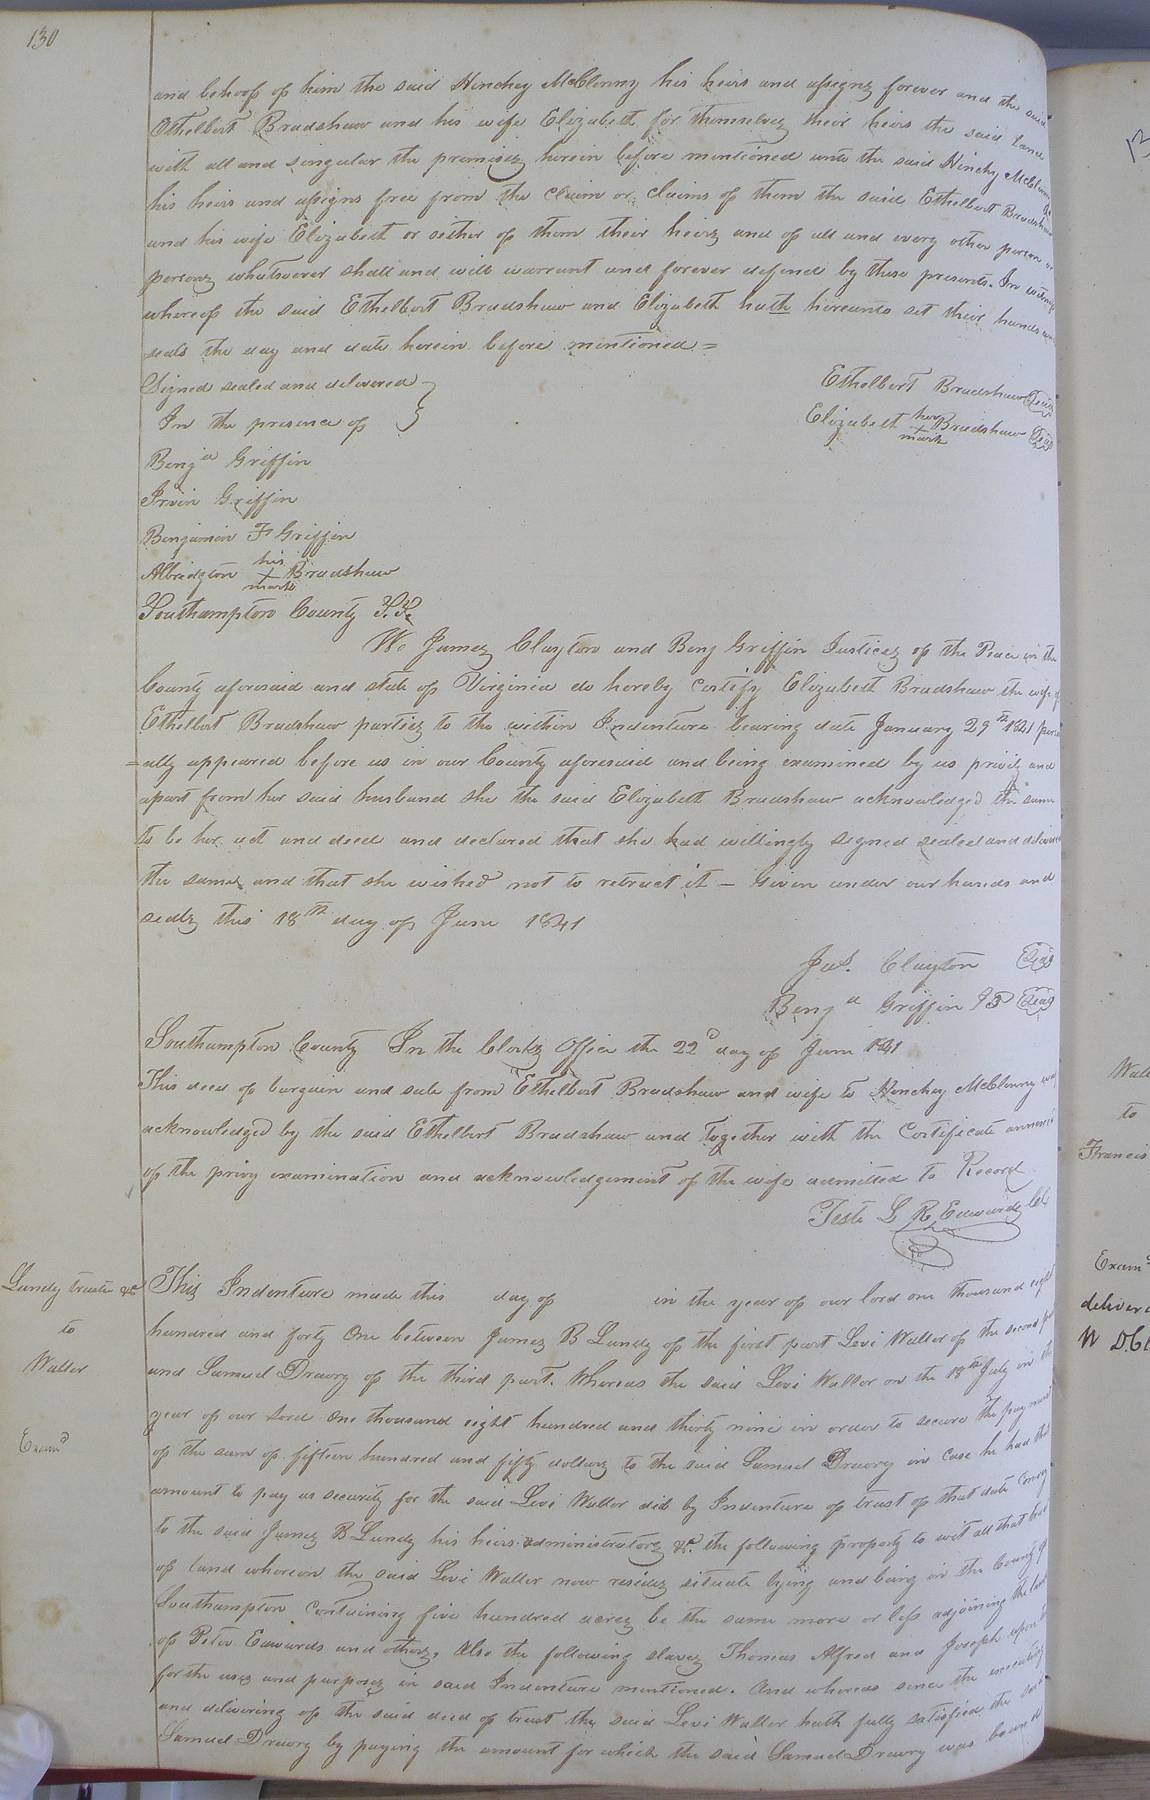 130
and behoof of him the said Hinchey McClenny his heirs and assigns forever and the said
Ethelbert Bradshaw and his wife Elizabeth for themselves their heirs the said Land
with all and singular the premises herein before mentioned unto the said Hinchy McClenny
his heirs and assigns free from the claim or claims of them the said Ethelbert Bradshaw
and his wife Elizabeth or either of them their heirs and of all and every other person or
persons whatsoever shall and will warrant and forever defend by these presents. In witness
whereof the said Ethelbert Bradshaw and Elizabeth hath hereunto set their hands and
seals the day and date herein before mentioned =
Signed sealed and delivered }
In the presence of }
Ethelbert Bradshaw Seal
Elizabeth her x mark Bradshaw Seal
Benja Griffin
Irvin Griffin
Benjamin F Griffin
Albridgton his x mark Bradshaw
Southampton County S.S.
We James Clayton and Benj Griffin Justices of the Peace in the
County aforesaid and state of Virginia do hereby certify Elizabeth Bradshaw the wife of
Ethelbert Bradshaw parties to the within Indenture bearing date January 29th 1841 person
=ally appeared before us in our County aforesaid and being examined by us privily and
apart from her said husband she the said Elizabeth Bradshaw acknowledged the same
to be her act and deed and declared that she had willingly signed sealed and delivered
the same and that she wished not to retract it – Given under our hands and
seals this 18th day of June 1841
Jas. Clayton Seal
Benja Griffin JP Seal
Southampton County In the Clerks Office the 22d day of June 1841
This deed of bargain and sale from Ethelbert Bradshaw and wife to Hinchey McClenny was
acknowledged by the said Ethelbert Bradshaw and together with the certificate annexed
of the privy examination and acknowledgement of the wife admitted to Record
Teste L R Edwards Clk
Lundy trustee &c
to
Waller
Examd
This Indenture made this day of in the year of our lord one thousand eight
hundred and forty One between James B Lundy of the first part Levi Waller of the second part
and Samuel Drewry of the third part. Whereas the said Levi Waller on the 18th July in the
year of our Lord One thousand eight hundred and thirty nine in order to secure the payment
of the sum of fifteen hundred and fifty dollars to the said Samuel Drewry in case he had that
amount to pay as security for the said Levi Waller did by Indenture of trust of that date convey
to the said James B Lundy his heirs administrators &c. the following property to wit all that tract
of land whereon the said Levi Waller now resides situate lying and being in the County of
Southampton containing five hundred acres be the same more or less adjoining the land
of Peter Edwards and others, Also the following slaves Thomas Alfred and Joseph upon trust
for the uses and purposes in said Indenture mentioned. And whereas since the executing
and delivering of the said deed of trust the said Levi Waller hath fully satisfied the said
Samuel Drewry by paying the amount for which the said Samuel Drewry was bound
13
Wall
to
Francis
Examd
deliver
W D.Cl